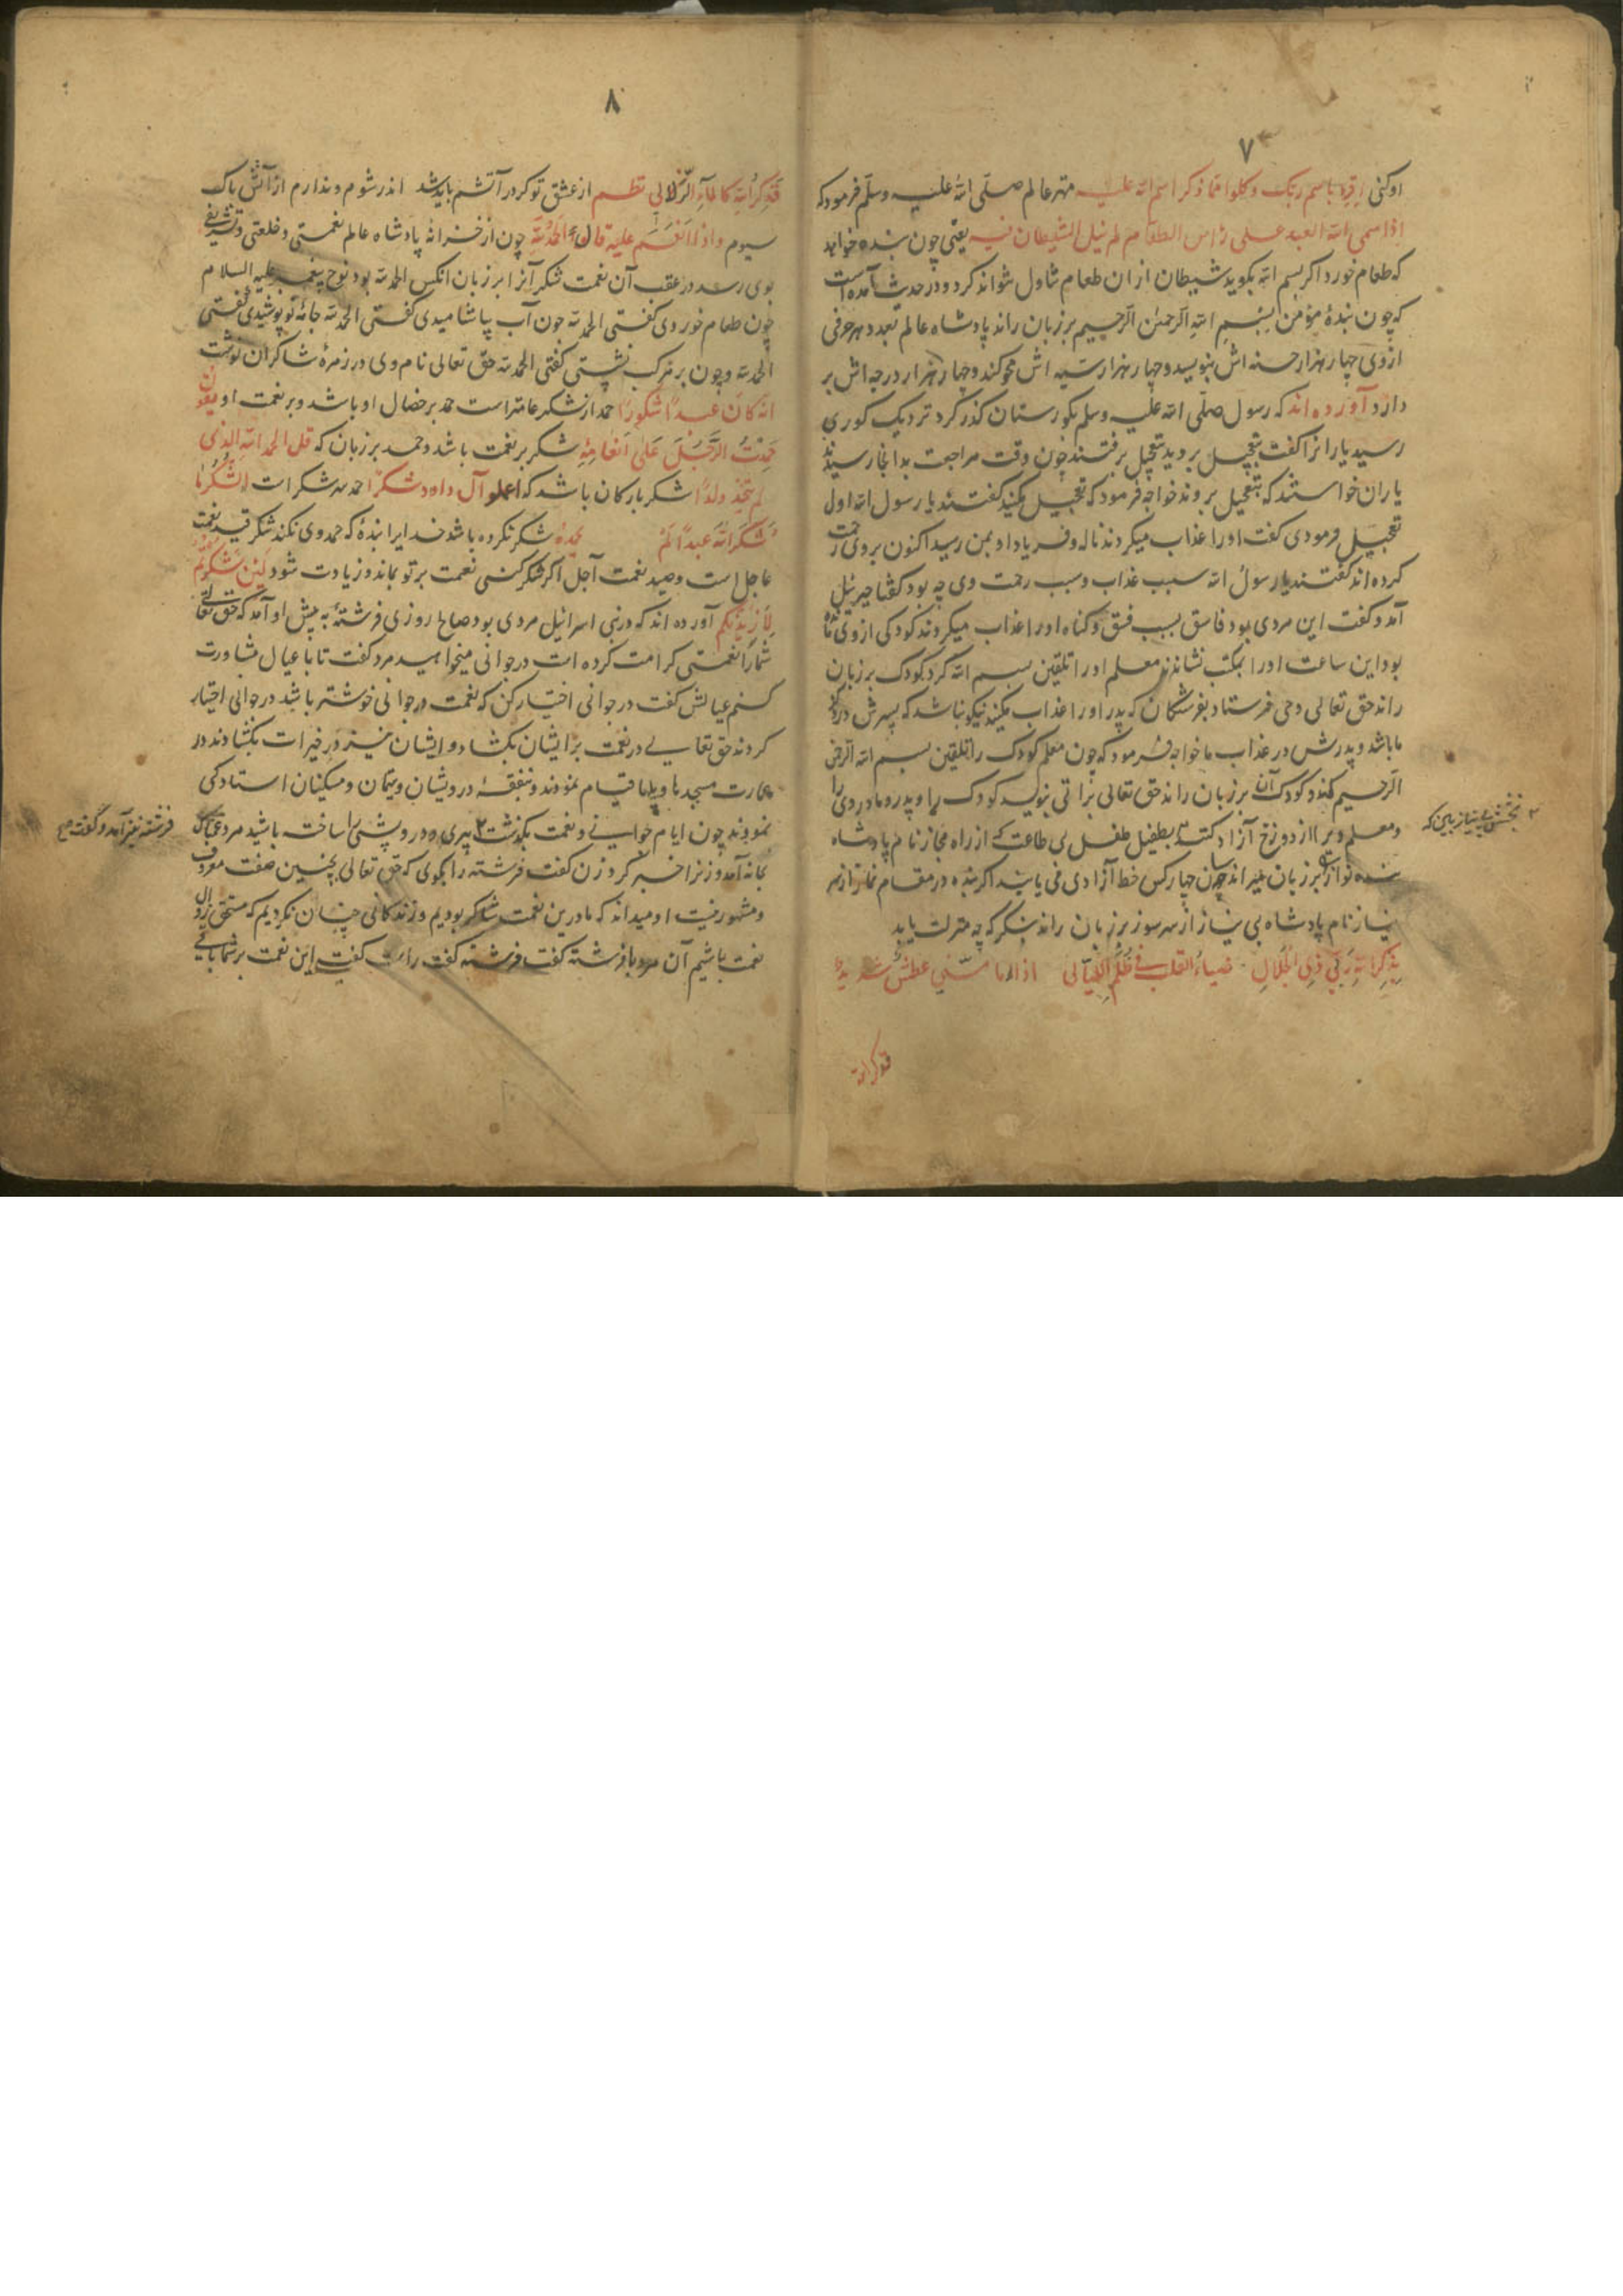 ۷
اوکنی اقرء باسم ربک و کلوا مما ذکر اسم الله علیه مهتر عالم صلّی الله علیه وسلّم فرمود که
اذا سمی الله العبد علی راس الطعام لم نیل الشیطان منه یعنی چون بنده خواهد
که طعام خورد اکر بسم الله بکوید شیطان از ان طعام تناول نتواند کرد و در حدیث آمده است
که چون بندهٔ مؤمن بِسْمِ اللهِ الرّحمن الرّحیم بر زبان راند پادشاه عالم بعدد هر حرفی
ازوی چهار هزار حسنه اش بنویسد و چهار هزار سیه اش محو کند و چهار هزار درجه اش بر
دارد آورده اند که رسول صلّی الله علیه وسلم بکورستان کذر کرد نزدیک کوری
رسید یارانرا کفت بتعجیل بروید بتعجیل برفتند چون وقت مراجعت بدانجا رسیدند
یاران خواستند که بتعجیل بروند خواجه فرمود که تعجیل مکنید کفتند یا رسول الله اول
تعجیل فرمودی کفت اورا عذاب میکردند ناله و فریاد او بمن رسید اکنون بروی رحمت
کرده اند کفتند یا رسولُ الله سبب عذاب و سبب رحمت وی چه بود کفتا جبرئیل
آمد و کفت این مردی بود فاسق بسبب فسق و کناه اورا عذاب میکردند کودکی ازوی مانده
بود این ساعت اورا بمکتب نشاندند معلم اورا تلقین بسم الله کرد کودک بر زبان
راند حق تعالی وحی فرستاد بفرشتکان که پدر اورا عذاب مکنید نیکو نباشد که پسرش در ذکر
ما باشد و پدرش در عذاب ما خواجه فرمود که چون معلم کودک را تلقین بسم الله الرحمن
الرّحیم کند و کودک آن بر زبان راند حق تعالی براتی بنویسد کودک را و پدر و مادر وی را
و معلم ویرا از دوزخ آزاد کند بطفیل طفل بی طاعت که از راه مجاز نام پادشاه
بنده نواز بر زبان میراند چون چهار کس خط آزادی می یابند اکر بنده در مقام نماز از سر
نیاز نام پادشاه بی نیاز از سر سوز بر زبان راند بنکر که چه منزلت یابد
بِذِکِر اللهِ رَبّی ذِی الجَلالِ ضیاءُ القلب فی ظُلَمِ اللّیالی اذا ما مسّنی عطش شدید
فذکر الله
بخشش بی نیاز ببین که
۸
فَذِکرُ اللهِ کالماءِ الزّلالی نظم از عشق تو کر در آتشم باید شد اندر شوم و ندارم از آتش باک
سیوم و اذا اَنعَمَ علیه قال الحَمدُ لله چون از خزانه پادشاه عالم نعمتی و خلعتی و تشریفی
بوی رسد در عقب آن نعمت شکر آنرا بر زبان آنکس الحمد لله بود نوح پیغمبر علیه السلام
چون طعام خوردی کفتی الحمد لله چون آب بیاشامیدی کفتی الحمد لله جامهٔ نو پوشیدی کفتی
الحمد لله و چون بر مرکب نشستی کفتی الحمد لله حق تعالی نام وی در زمرهٔ شاکران نوشت
انّه کان عبدًا شکورًا حمد از شکر عامتر است حمد بر خصال او باشد و بر نعمت او یقولون
حَمِدْتُ الرَّجُلَ عَلی اَنعامِهِ شکر بر نعمت باشد و حمد بر زبان که قل الحمد لله الذی
لم یتخذ ولدًا شکر بارکان باشد که اعملو آل داود شکرًا حمد سر شکر است الشکر ما
شَکَرَ اللهَ عبدًا لَمْ یحمدهُ شکر نکرده باشد خدایرا بندهٔ که حمد وی نکند شکر قید نعمت
عاجل است و صید نعمت آجل اکر شکر کنی نعمت بر تو بماند و زیادت شود لَئِن شَکَرتُم
لَاَزِیدَنَّکم آورده اند که در بنی اسرائیل مردی بود صالح روزی فرشتهٔ به پیش او آمد که حق تعالی
شمارا نعمتی کرامت کرده است در جوانی میخواهید مرد کفت تا با عیال مشاورت
کنم عیالش کفت در جوانی اختیار کن که نعمت در جوانی خوشتر باشد در جوانی اختیار
کردند حق تعالی در نعمت برایشان بکشاد و ایشان نیز در خیرات بکشادند در
عمارت مسجدها و پلها قیام نمودند و بنفقهٔ درویشان و یتیمان و مسکینان استادکی
نمودند چون ایام جوانی و نعمت بکذشت پیری و درویشی را ساخته باشید مرد غمناک
بخانه آمد و زنرا خبر کرد زن کفت فرشته را بکوی که حق تعالی بچنین صفت معروف
و مشهور نیست او میداند که ما درین نعمت شاکر بودیم و زندکانی چنان نکردیم که مستحق زوال
نعمت باشیم آن مرد با فرشته کفت فرشته کفت راست کفت این نعمت بر شما باقی
فرشته نیز آمد و گفت